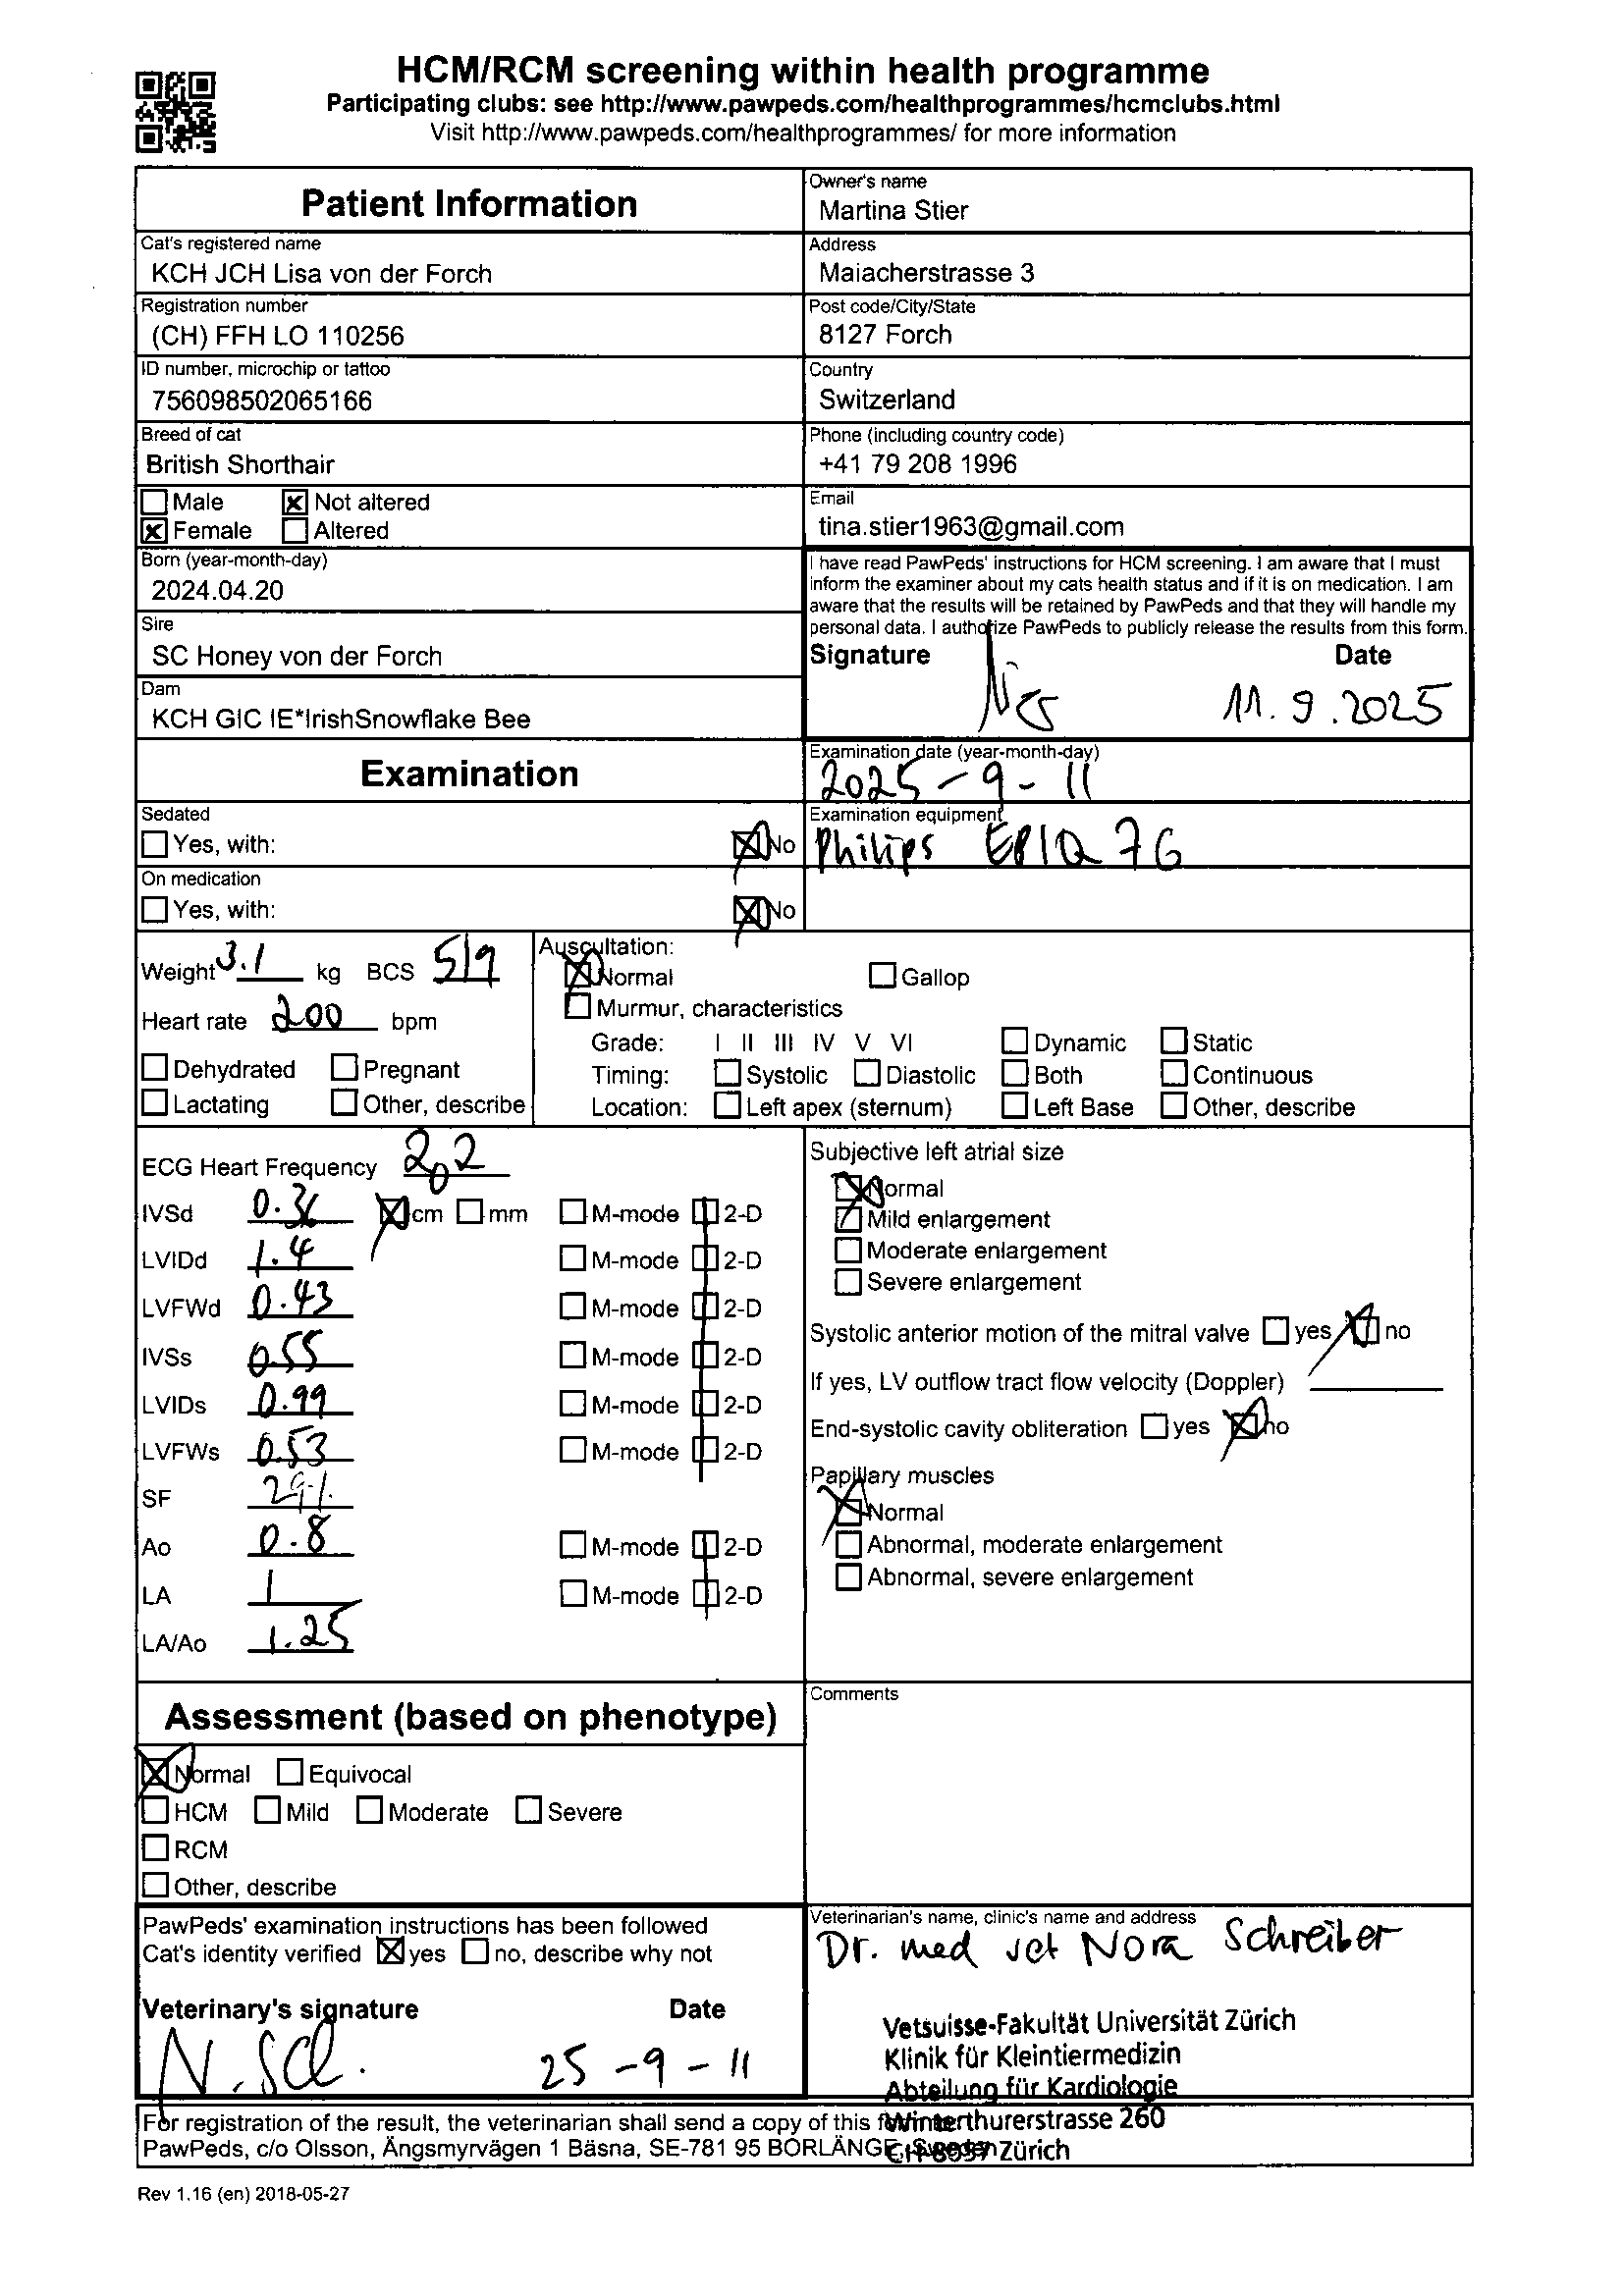 HCM/RCM screening within health programme
Participating clubs: see http://www.pawpeds.com/healthprogrammes/hcmclubs.html
Visit http://www.pawpeds.com/healthprogrammes/ for more information
Patient Information
Owner's name
Martina Stier
Cat's registered name
KCH JCH Lisa von der Forch
Address
Maiacherstrasse 3
Registration number
(CH) FFH LO 110256
Post code/City/State
8127 Forch
ID number, microchip or tattoo
756098502065166
Country
Switzerland
Breed of cat
British Shorthair
Phone (including country code)
+41 79 208 1996
Male Not altered
Female Altered
Email
tina.stier1963@gmail.com
Born (year-month-day)
2024.04.20
I have read PawPeds' instructions for HCM screening. I am aware that I must
inform the examiner about my cats health status and if it is on medication. I am
aware that the results will be retained by PawPeds and that they will handle my
personal data. I authorize PawPeds to publicly release the results from this form.
Sire
SC Honey von der Forch
Signature Date
11.9.2025
Dam
KCH GIC IE*IrishSnowflake Bee
Examination
Examination date (year-month-day)
2025-9-11
Sedated
Yes, with: No
Examination equipment
Philips EPIQ 7G
On medication
Yes, with: No
Weight 3.1 kg BCS 5/9
Heart rate 200 bpm
Dehydrated Pregnant
Lactating Other, describe
Auscultation:
Normal Gallop
Murmur, characteristics
Grade: I II III IV V VI Dynamic Static
Timing: Systolic Diastolic Both Continuous
Location: Left apex (sternum) Left Base Other, describe
ECG Heart Frequency 202
IVSd 0.36 cm mm M-mode 2-D
LVIDd 1.4 M-mode 2-D
LVFWd 0.43 M-mode 2-D
IVSs 0.55 M-mode 2-D
LVIDs 0.99 M-mode 2-D
LVFWs 0.53 M-mode 2-D
SF 29%
Ao 0.8 M-mode 2-D
LA 1 M-mode 2-D
LA/Ao 1.25
Subjective left atrial size
Normal
Mild enlargement
Moderate enlargement
Severe enlargement
Systolic anterior motion of the mitral valve yes no
If yes, LV outflow tract flow velocity (Doppler)
End-systolic cavity obliteration yes no
Papillary muscles
Normal
Abnormal, moderate enlargement
Abnormal, severe enlargement
Assessment (based on phenotype)
Normal Equivocal
HCM Mild Moderate Severe
RCM
Other, describe
Comments
PawPeds' examination instructions has been followed
Cat's identity verified yes no, describe why not
Veterinary's signature Date
N. Sch. 25-9-11
Veterinarian's name, clinic's name and address
Dr. med vet Nora Schreiber
Vetsuisse-Fakultät Universität Zürich
Klinik für Kleintiermedizin
Abteilung für Kardiologie
Winterthurerstrasse 260
CH-8057 Zürich
For registration of the result, the veterinarian shall send a copy of this form to:
PawPeds, c/o Olsson, Ängsmyrvägen 1 Bäsna, SE-781 95 BORLÄNGE, Sweden
Rev 1.16 (en) 2018-05-27